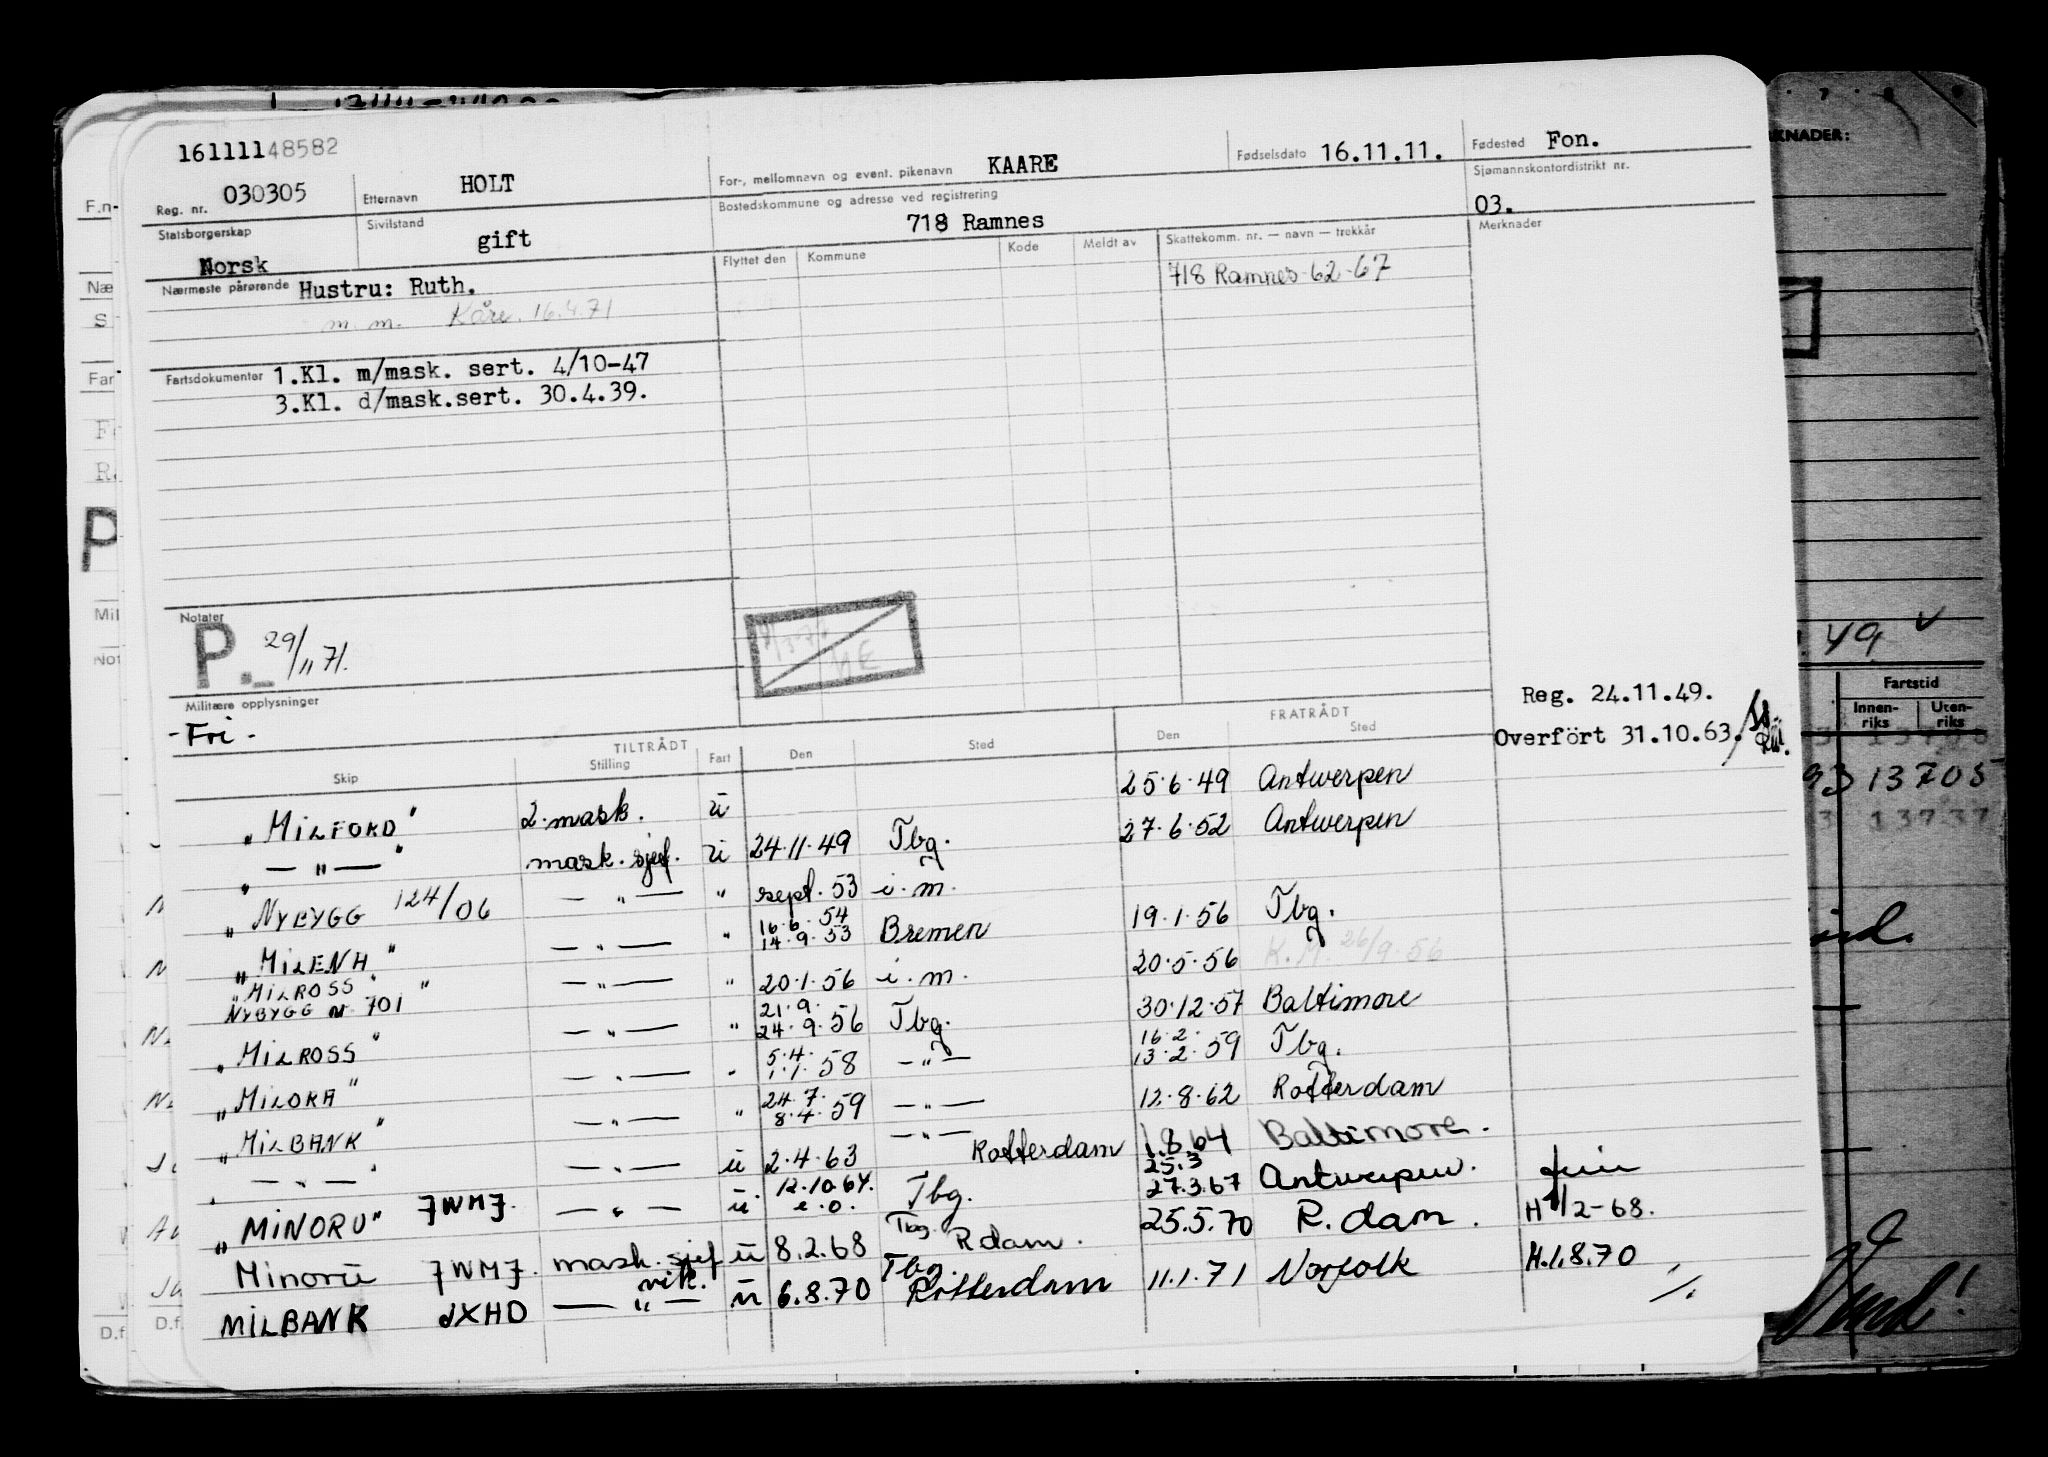 16111148582
Reg. nr. 030305 Etternavn HOLT For-, mellomnavn og event. pikenavn KAARE Fødselsdato 16.11.11. Fødested Fon.
Statsborgerskap Norsk Sivilstand gift Bostedskommune og adresse ved registrering 718 Ramnes Sjømannskontordistrikt nr. 03.
Nærmeste pårørende Hustru: Ruth. Flyttet den Kommune Kode Meldt av Skattekomm. nr. — navn — trekkår Merknader
m. m. Kåre. 16.4.71 718 Ramnes 62-67
Fartsdokumenter 1.Kl. m/mask. sert. 4/10-47
3.Kl. d/mask.sert. 30.4.39.
Notater
P._ 29/11 71.
Militære opplysninger
- Fri - Reg. 24.11.49.
Overført 31.10.63.
TILTRÅDT FRATRÅDT
Skip Stilling Fart Den Sted Den Sted
"MILFORD" 2. mask. ü 25.6.49 Antwerpen
" — " — " mask. sjef. ü 24.11.49 Tbg. 27.6.52 Antwerpen
"NYBYGG 124/06 — " — " sept. 53 i.m.
"MILENA" — " — " 16.6.54 14.9.53 Bremen 19.1.56 Tbg.
"MILROSS" NYBYGG nr 701" — " — " 20.1.56 i.m. 20.5.56 K.M. 26/9.56
"MILROSS" — " — " 21.9. 24.9.56 Tbg. 30.12.57 Baltimore
"MILORA" — " — " 5.4. 1.1.58 — " — 16.2. 13.2.59 Tbg.
"MILBANK" — " — " 24.7. 8.4.59 — " — 12.8.62 Rotterdam
" — " — " — " — ü 2.4.63 — " — Rotterdam 1.8.64 Baltimore.
"MINORU" JWMJ. — " — ü 12.10.64. e.o. Tbg. 25.3 27.3.67 Antwerpen.
Minoru JWMJ. mask. sjef ü 8.2.68 Tbg. Rdam. 25.5.70 R.dam. H 1/2-68.
MILBANK JXHD — " — vik. ü 6.8.70 Tbg. Rotterdam 11.1.71 Norfolk H.1.8.70
KNADER:
49
Fartstid
Innen-riks Uten-riks
93 13705
3 13737
Vend!